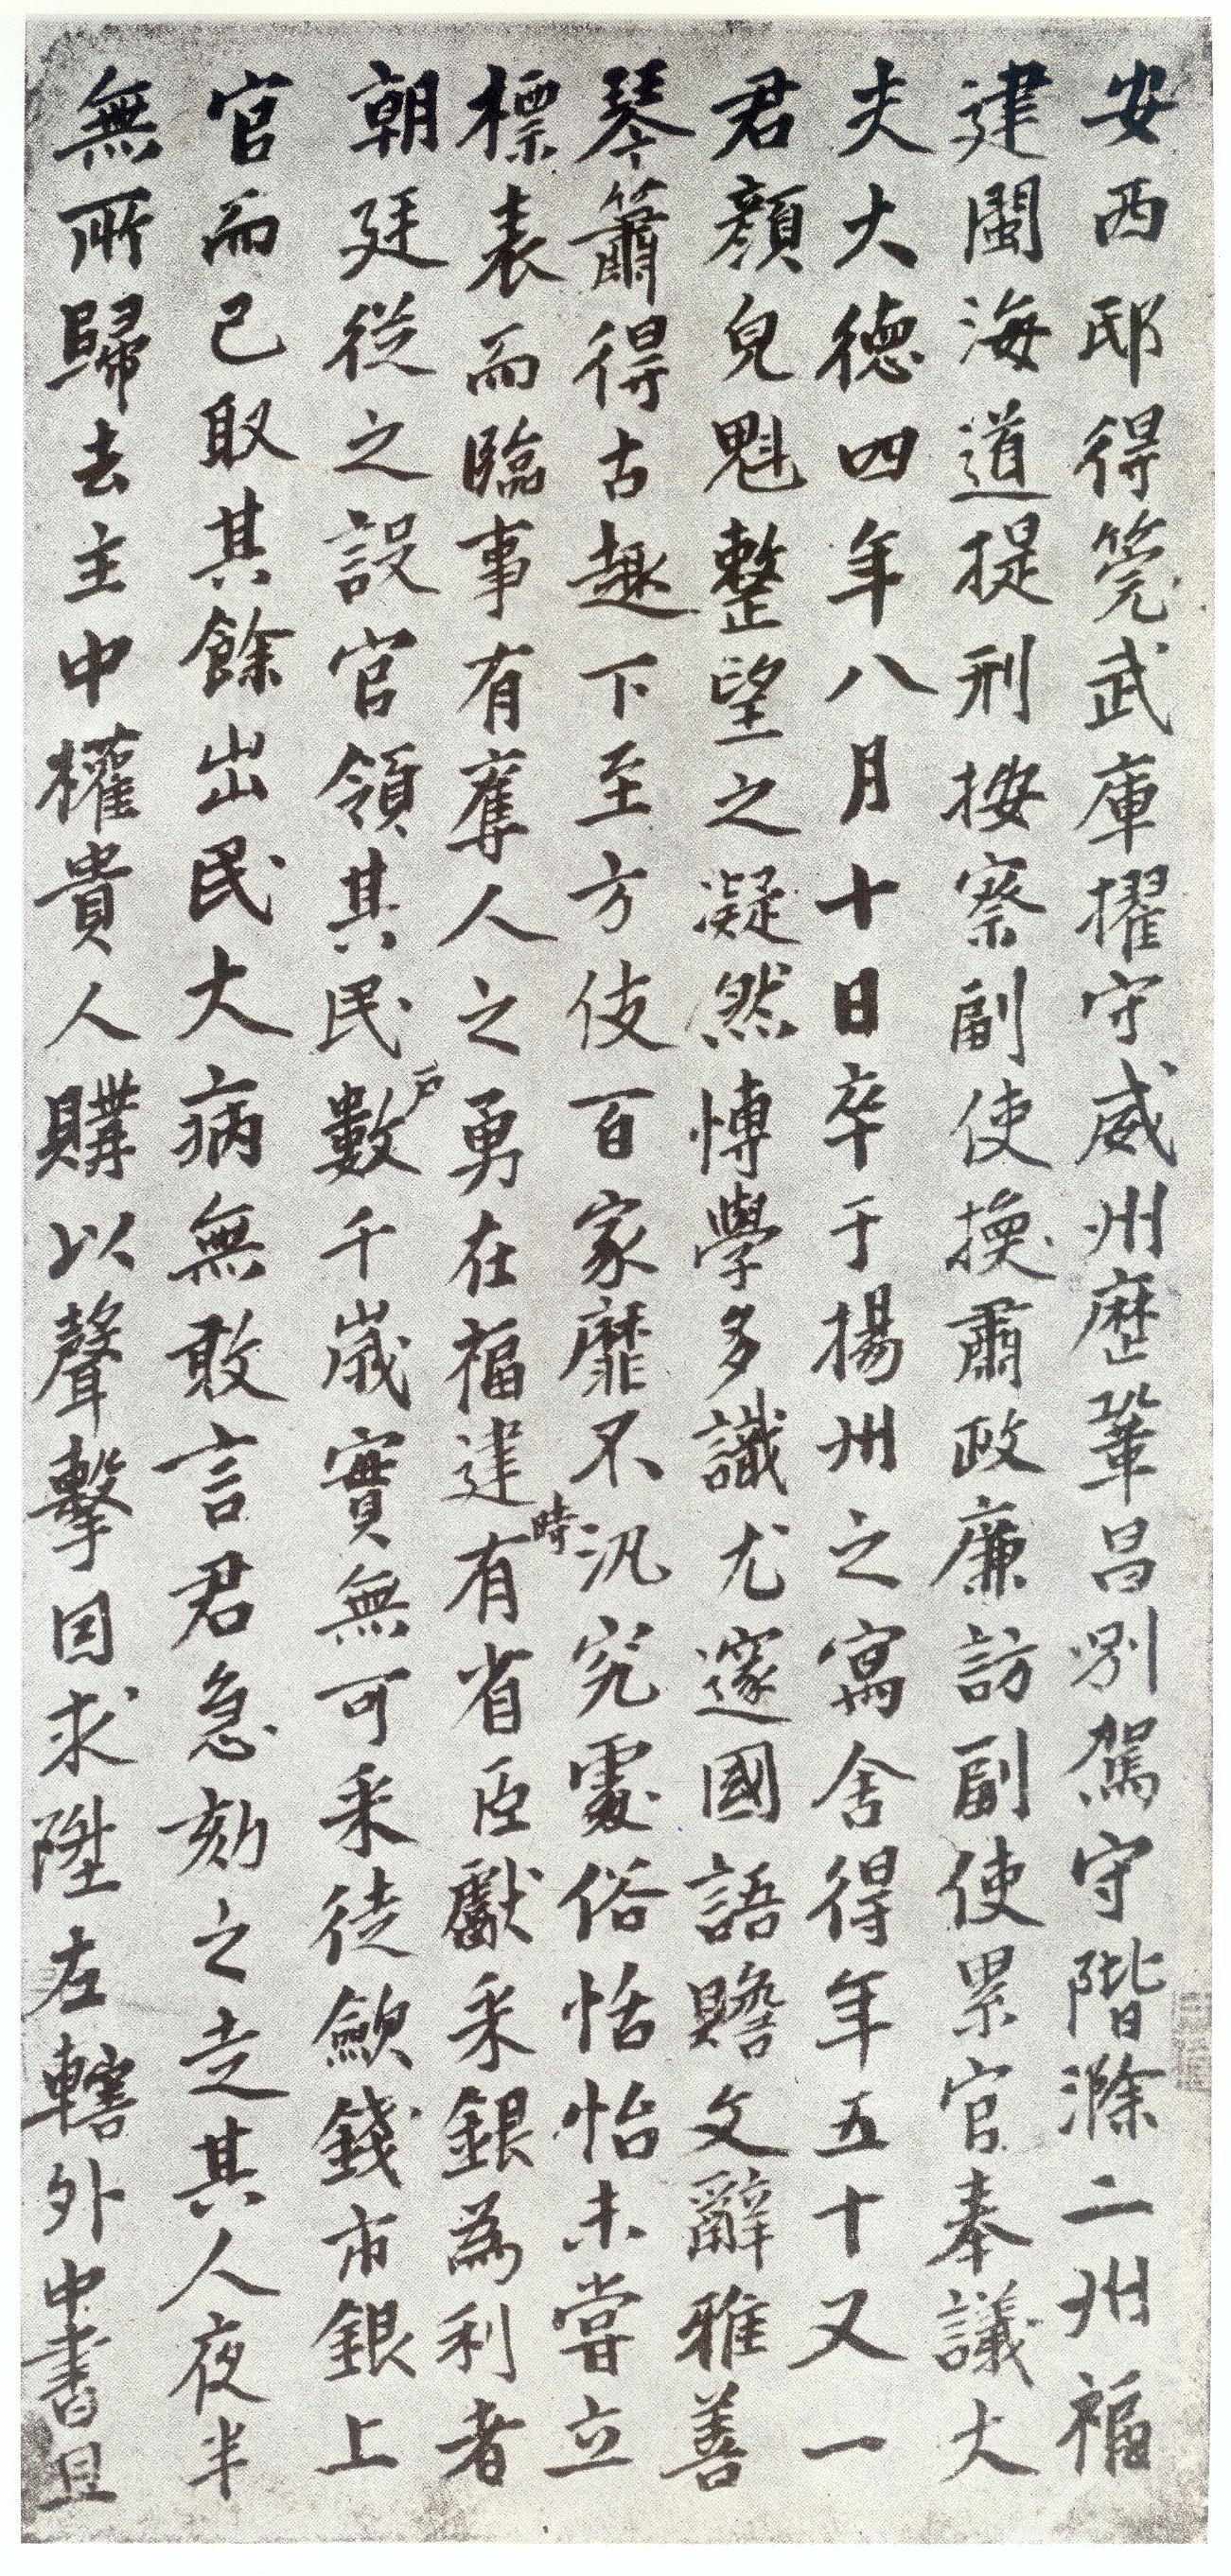 安西邸得筦武庫擢守威州歷鞏昌別駕守階滁二州福
建閩海道提刑按察副使換肅政廉訪副使累官奉議大
夫大德四年八月十日卒于揚州之寓舍得年五十又一
君顏皃魁整望之凝然博學多識尤邃國語贍文辭雅善
琴簫得古趣下至方伎百家靡不汎究處俗恬怡未嘗立
標表而臨事有奪人之勇在福建時有省臣獻采銀為利者
朝廷從之設官領其民戶數千歲實無可采徒斂錢市銀上
官而已取其餘出民大病無敢言君急劾之走其人夜半
無所歸去主中權貴人購以聲擊因求陞左轄外中書且